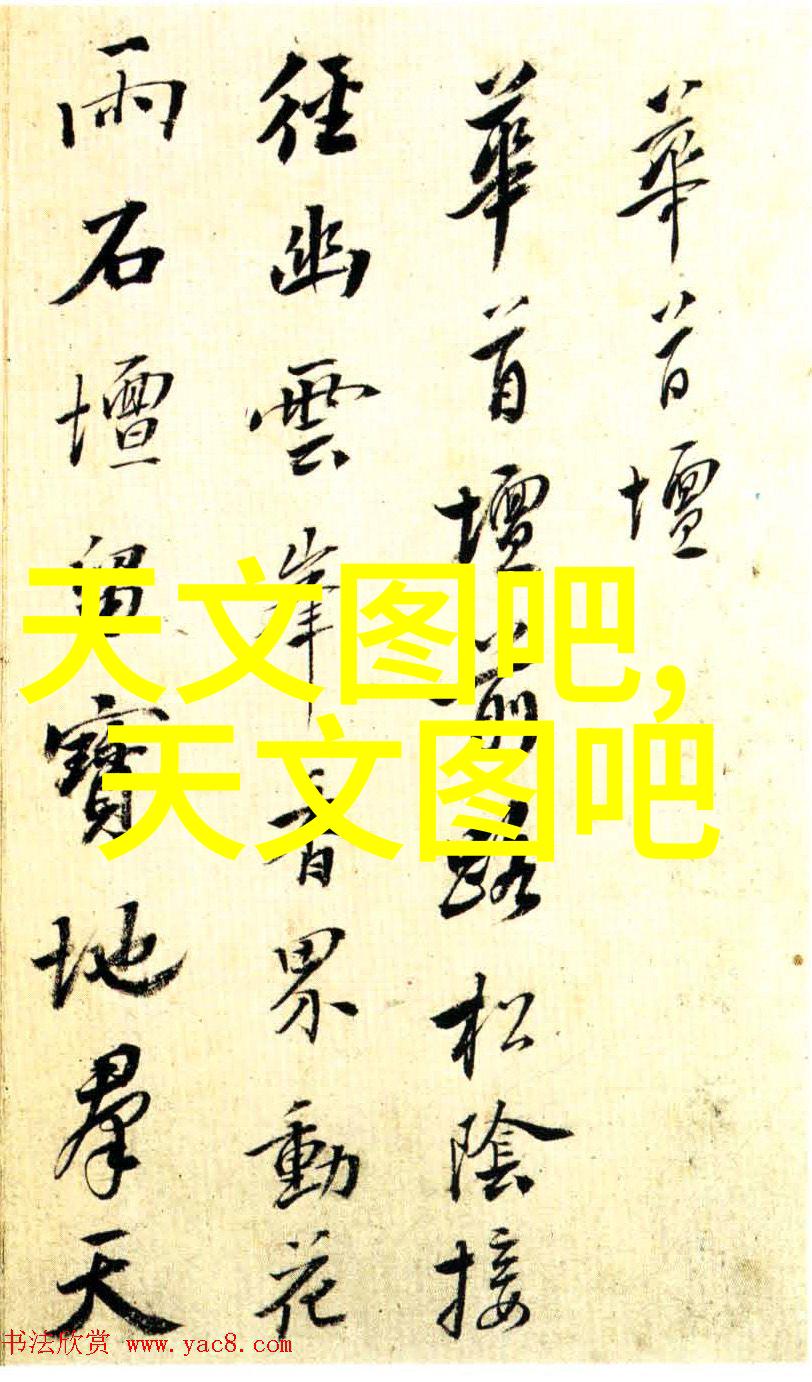 華首壇
華首壇前路松陰接
徑幽雲岸香界動花
雨石壇留寶地群天
天文图吧,
天文图吧
书法欣赏 www.yac8.com